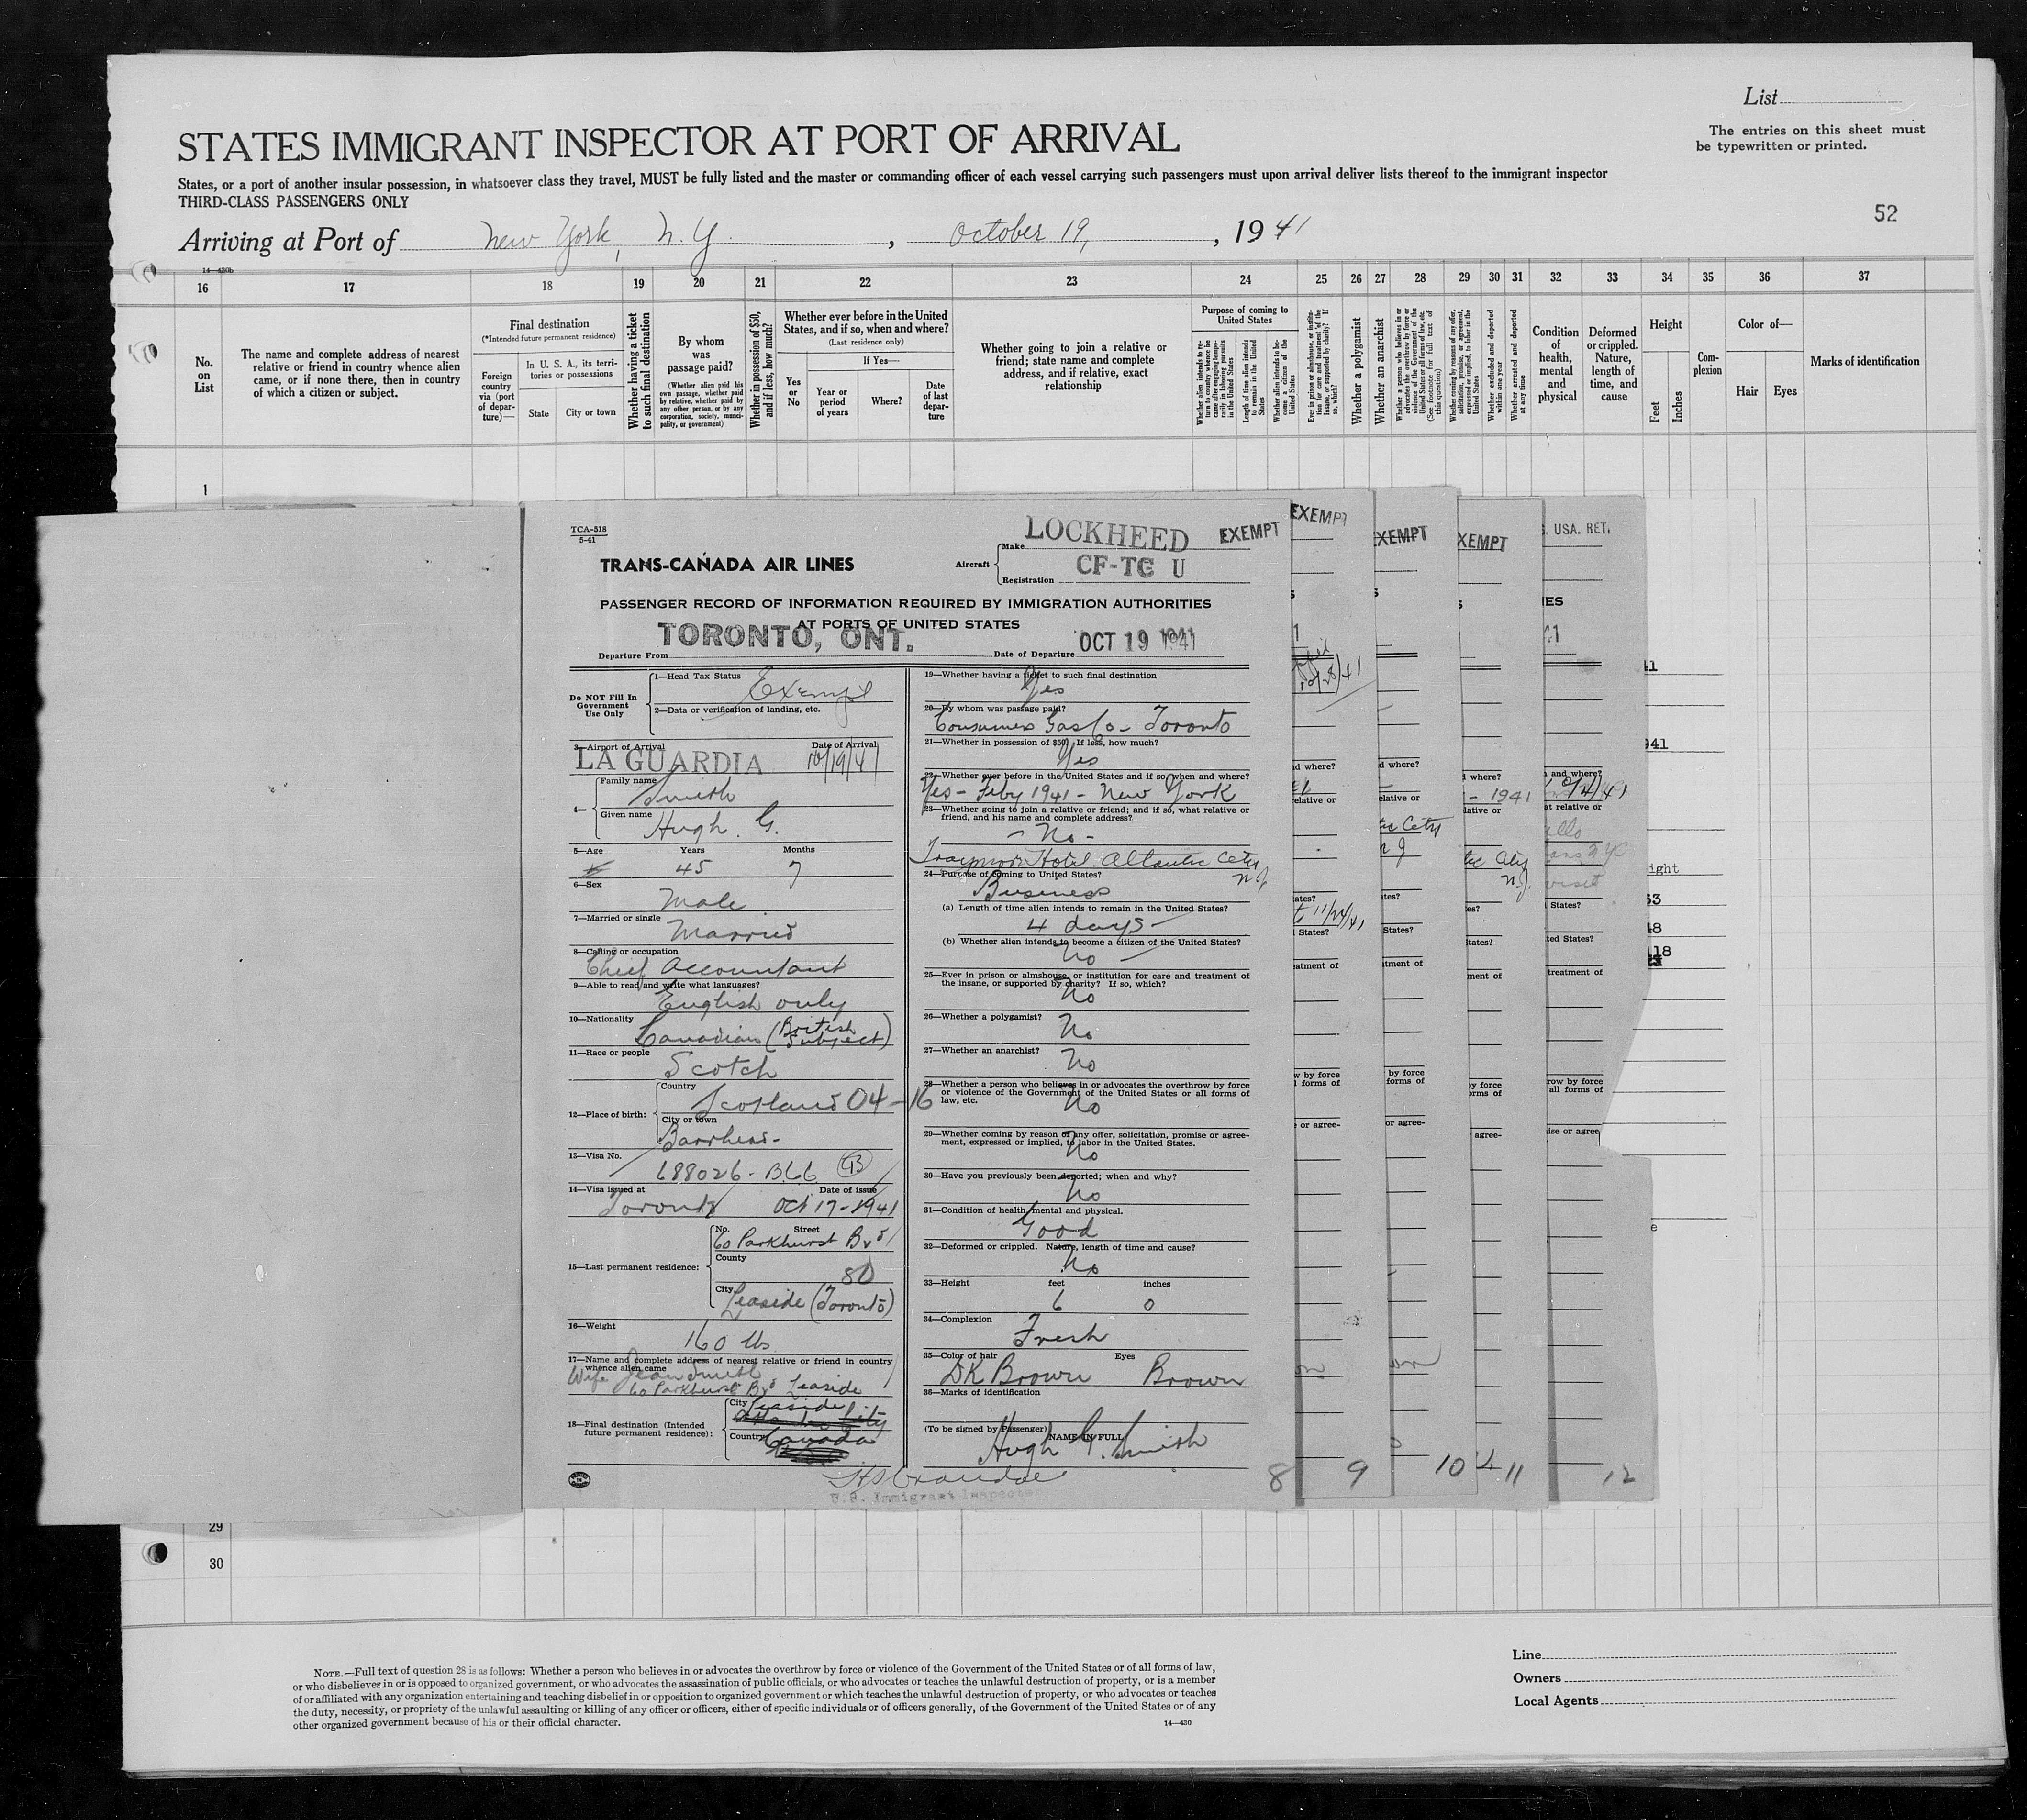 List
The entries on this sheet must
be typewritten or printed.
STATES IMMIGRANT INSPECTOR AT PORT OF ARRIVAL
States, or a port of another insular possession, in whatsoever class they travel, MUST be fully listed and the master or commanding officer of each vessel carrying such passengers must upon arrival deliver lists thereof to the immigrant inspector
THIRD-CLASS PASSENGERS ONLY
52
Arriving at Port of New York, N.Y. , October 19, , 1941
14—430b
16 17 18 19 20 21 22 23 24 25 26 27 28 29 30 31 32 33 34 35 36 37
No.
on
List
The name and complete address of nearest
relative or friend in country whence alien
came, or if none there, then in country
of which a citizen or subject.
Final destination
(*Intended future permanent residence)
Foreign
country
via (port
of depar-
ture)—
In U. S. A., its terri-
tories or possessions
State City or town
Whether having a ticket
to such final destination
By whom
was
passage paid?
(Whether alien paid his
own passage, whether paid
by relative, whether paid by
any other person, or by any
corporation, society, munici-
pality, or government)
Whether in possession of $50,
and if less, how much?
Whether ever before in the United
States, and if so, when and where?
(Last residence only)
Yes
or
No
If Yes—
Year or
period
of years
Where?
Date
of last
depar-
ture
Whether going to join a relative or
friend; state name and complete
address, and if relative, exact
relationship
Purpose of coming to
United States
Length of time alien intends
to remain in the United
States
Whether alien intends to be-
come a citizen of the
United States
Whether a polygamist
Whether an anarchist
Whether excluded and deported
within one year
Whether arrested and deported
at any time
Condition
of
health,
mental
and
physical
Deformed
or crippled.
Nature,
length of
time, and
cause
Height
Feet
Inches
Com-
plexion
Color of—
Hair Eyes
Marks of identification
1
TCA-518
5-41
TRANS-CANADA AIR LINES
Aircraft
Make LOCKHEED
Registration CF-TC U
EXEMPT
PASSENGER RECORD OF INFORMATION REQUIRED BY IMMIGRATION AUTHORITIES
AT PORTS OF UNITED STATES
Departure From TORONTO, ONT. Date of Departure OCT 19 1941
Do NOT Fill In
Government
Use Only
1—Head Tax Status Exempt
2—Data or verification of landing, etc.
3—Airport of Arrival LA GUARDIA Date of Arrival 10/19/41
4— Family name Smith
Given name Hugh. G.
5—Age Years 45 Months 7
6—Sex Male
7—Married or single Married
8—Calling or occupation Chief Accountant
9—Able to read and write what languages? English only
10—Nationality Canadian (British Subject)
11—Race or people Scotch
12—Place of birth: Country Scotland 04-16
City or town Barrhead-
13—Visa No. 688026 - BL6
14—Visa issued at Toronto Date of issue Oct 17-1941
15—Last permanent residence:
No. Street 60 Parkhurst Bvd
County 80
City Leaside (Toronto)
16—Weight 160 lbs
17—Name and complete address of nearest relative or friend in country
whence alien came
Wife Jean Smith
60 Parkhurst Bvd Leaside
18—Final destination (Intended
future permanent residence):
City Leaside
Country Canada
19—Whether having a ticket to such final destination
Yes
20—By whom was passage paid?
Consumers Gas Co - Toronto
21—Whether in possession of $50, If less, how much?
Yes
22—Whether ever before in the United States and if so, when and where?
Yes - Feby 1941 - New York
23—Whether going to join a relative or friend; and if so, what relative or
friend, and his name and complete address?
- No -
Traymore Hotel Atlantic City
N.J.
24—Purpose of coming to United States?
Business
(a) Length of time alien intends to remain in the United States?
4 days -
(b) Whether alien intends to become a citizen of the United States?
No -
25—Ever in prison or almshouse, or institution for care and treatment of
the insane, or supported by charity? If so, which?
No
26—Whether a polygamist? No
27—Whether an anarchist? No
28—Whether a person who believes in or advocates the overthrow by force
or violence of the Government of the United States or all forms of
law, etc. No
29—Whether coming by reason of any offer, solicitation, promise or agree-
ment, expressed or implied, to labor in the United States.
No
30—Have you previously been deported; when and why?
No
31—Condition of health, mental and physical.
Good
32—Deformed or crippled. Nature, length of time and cause?
No
33—Height feet 6 inches 0
34—Complexion Fresh
35—Color of hair DK Brown Eyes Brown
36—Marks of identification
(To be signed by Passenger) NAME IN FULL
Hugh G. Smith
U.S. Immigrant Inspector
8 9 10 11 12
EXEMPT
29
30
NOTE.—Full text of question 28 is as follows: Whether a person who believes in or advocates the overthrow by force or violence of the Government of the United States or of all forms of law,
or who disbelieves in or is opposed to organized government, or who advocates the assassination of public officials, or who advocates or teaches the unlawful destruction of property, or is a member
of or affiliated with any organization entertaining and teaching disbelief in or opposition to organized government or which teaches the unlawful destruction of property, or who advocates or teaches
the duty, necessity, or propriety of the unlawful assaulting or killing of any officer or officers, either of specific individuals or of officers generally, of the Government of the United States or of any
other organized government because of his or their official character.
14—430
Line
Owners
Local Agents